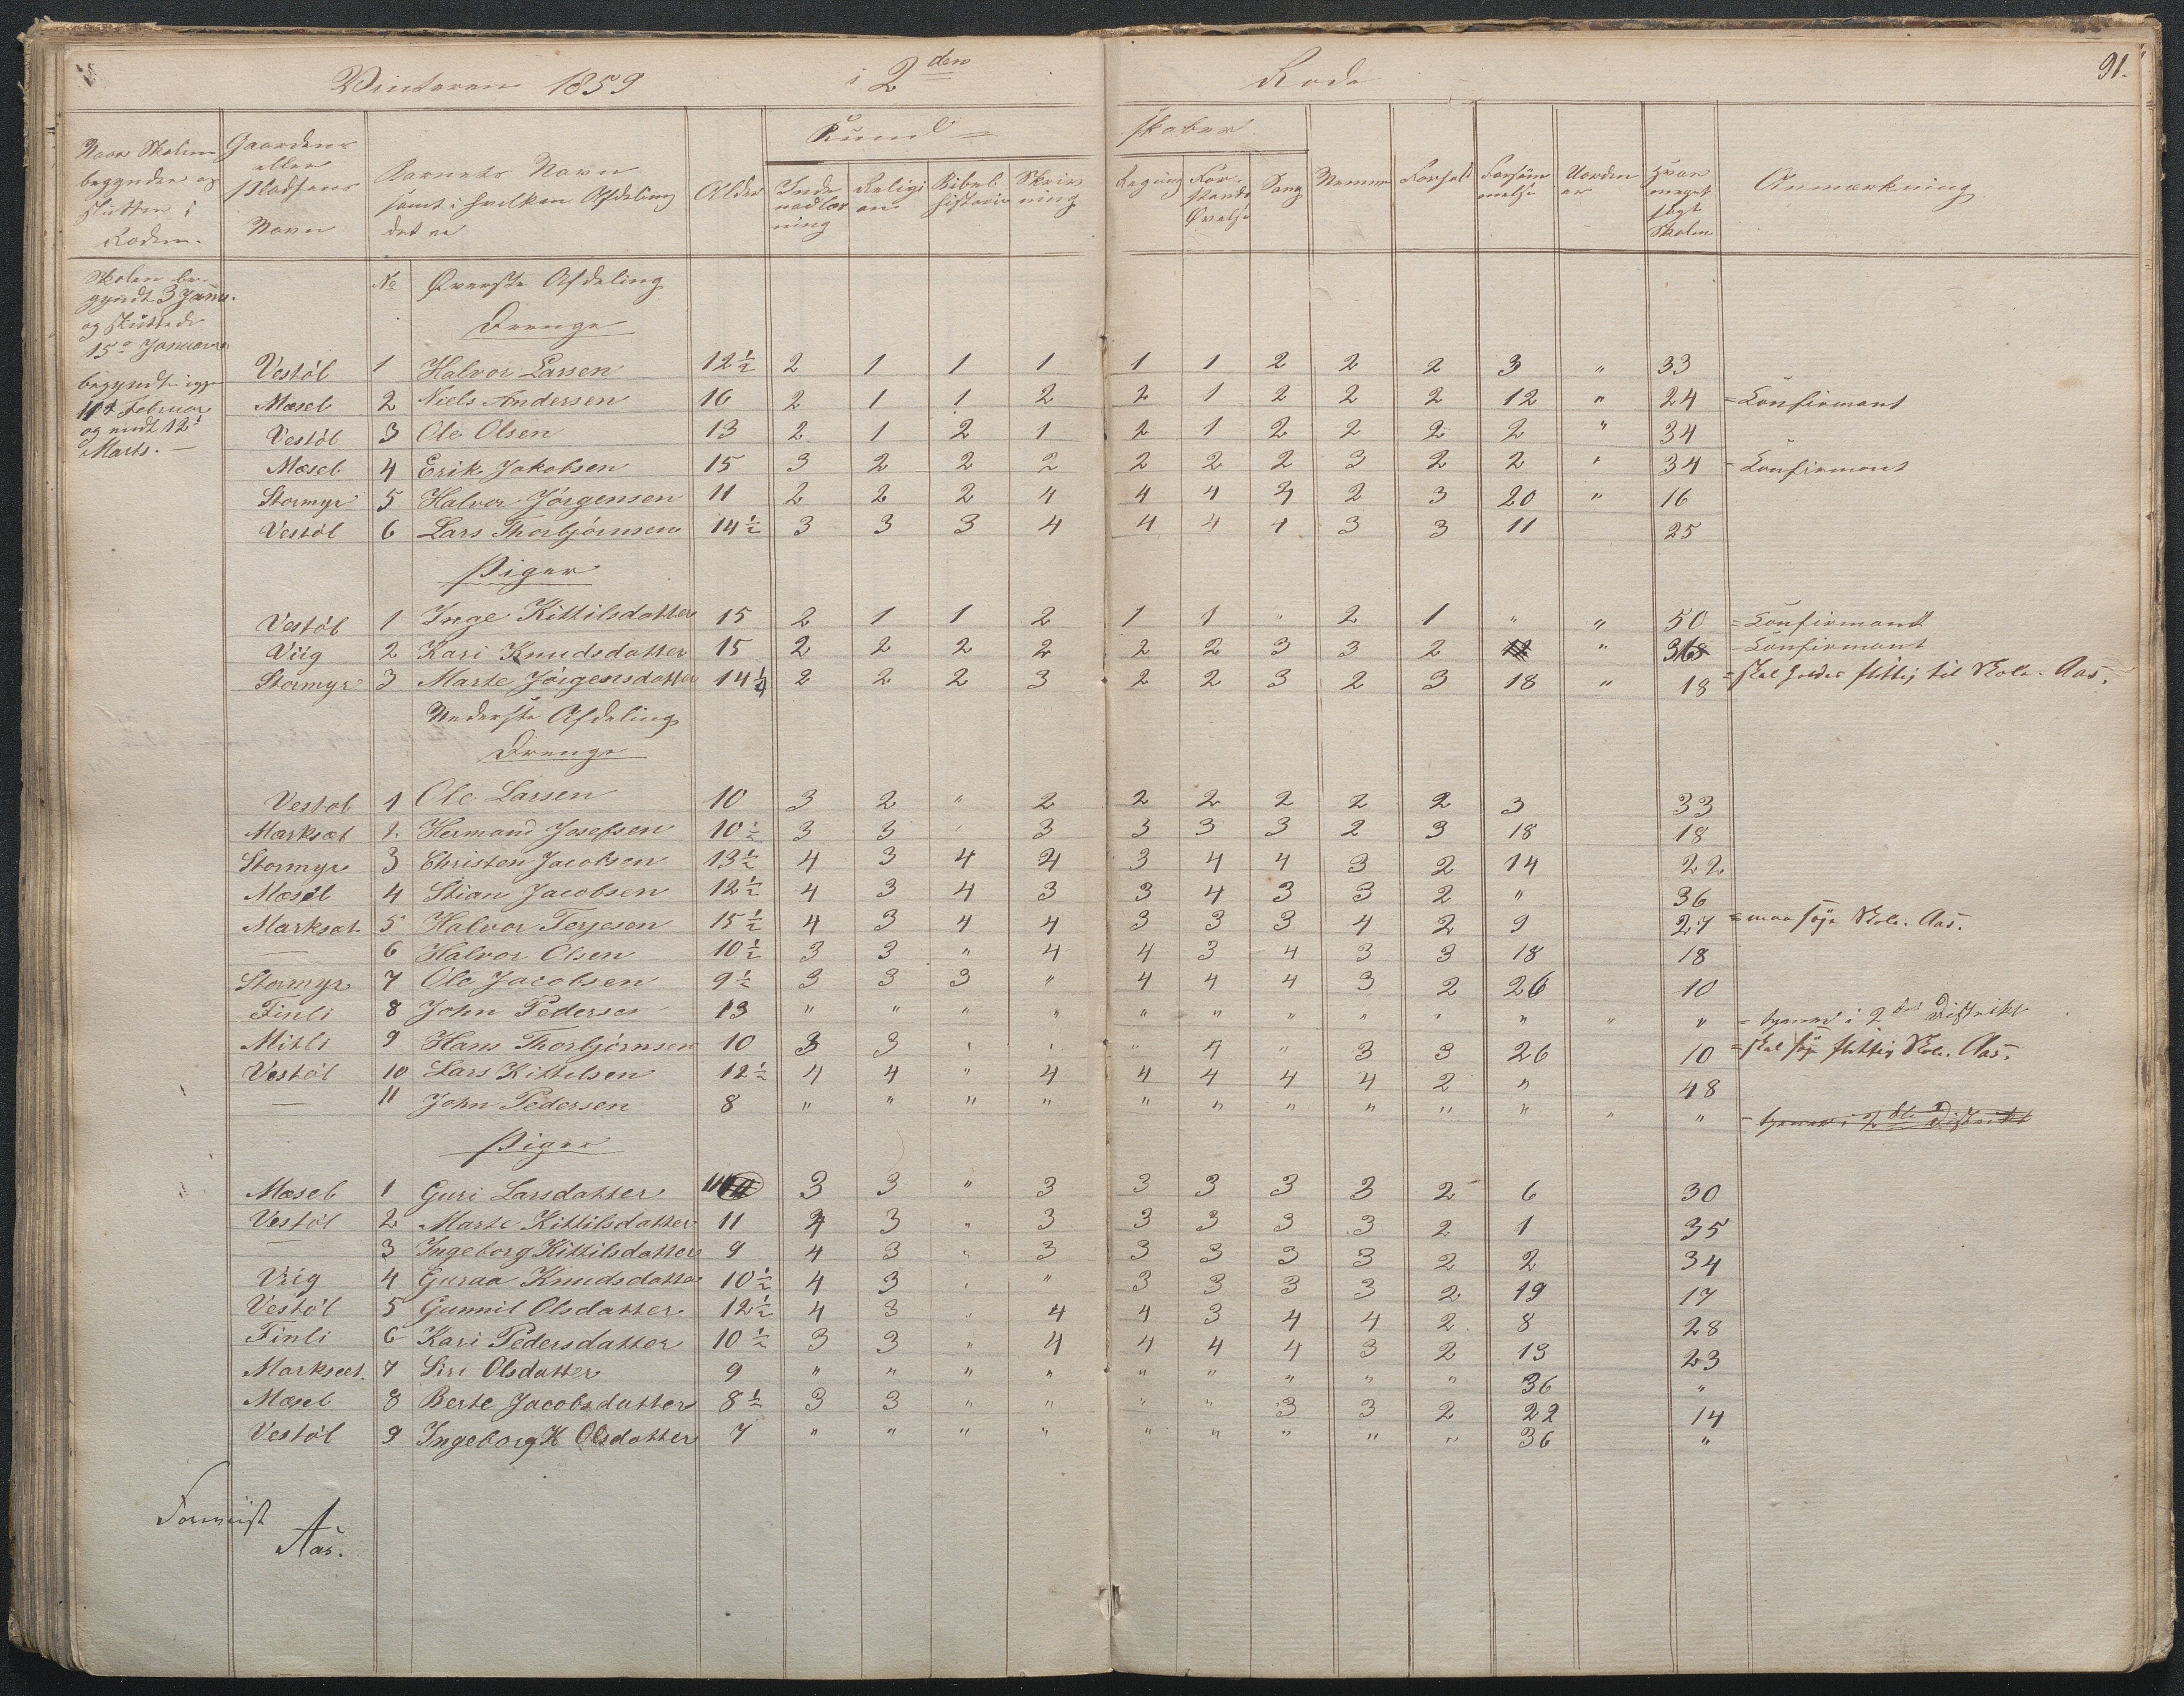 Vinteren 1859 i 2den Rode 91.
Naar Skolen begynder og slutter i Roden. | Gaardens eller Pladsens Navn | Barnets Navn samt i hvilken Afdeling det er | Alder | Kund= skaber | Anmærkning
Indenadlæsning | Religion | Bibelhistorie | Skrivning | Regning | Forstands Øvelse | Sang | Nemme | Forhold | Forsømmelse | Uorden | Hvor meget søgt Skolen
Skolen begyndt 3 Janu. og sluttede 15de Januar
begyndt igjen Februar og endt 12te Marts. —
No Øverste Afdeling
Drenge
Vestöl 1 Halvor Larsen 12½ 2 1 1 1 1 1 2 2 2 3 " 33
Mæsel 2 Niels Andersen 16 2 1 1 2 2 1 2 2 2 12 " 24 = Konfirmant
Vestöl 3 Ole Olsen 13 2 1 2 1 2 1 2 2 2 2 " 34
Mæsel 4 Erik Jakobsen 15 3 2 2 2 2 2 2 3 2 2 " 34 = Konfirmant
Stormyr 5 Halvor Jörgensen 11 2 2 2 4 4 4 4 2 3 20 " 16
Vestöl 6 Lars Thorbjörnsen 14½ 3 3 3 4 4 4 4 3 3 11 25
Piger
Vestöl 1 Inge Kittilsdatter 15 2 1 1 2 1 1 " 2 1 " " 50 = Konfirmant
Viig 2 Kari Knudsdatter 15 2 2 2 2 2 2 3 3 2 " 36 = Konfirmant
Stormyr 3 Marte Jörgensdatter 14¼ 2 2 2 3 2 2 3 2 3 18 " 18 = skal holdes flittig til Skole. Aas.
Nederste Afdeling
Drenge
Vestøl 1 Ole Larsen 10 3 2 " 2 2 2 2 2 2 3 33
Marksæt 2. Hermand Josefsen 10½ 3 3 " 3 3 3 3 2 3 18 18
Stormyr 3 Christen Jacobsen 13½ 4 3 4 4 3 4 4 3 2 14 22
Mæsel 4 Stian Jacobsen 12½ 4 3 4 3 3 4 3 3 2 " 36
Marksæt 5 Halvor Terjesen 15½ 4 3 4 4 3 3 3 4 2 9 27 = maa søge Skole. Aas.
— 6 Halvor Olsen 10½ 3 3 " 4 4 3 4 3 3 18 18
Stormyr 7 Ole Jacobsen 9½ 3 3 3 " 4 4 4 3 2 26 10
Finli 8 John Pedersen 13 " " " " " " " " " " " " = tjener i 2det Distrikt
Mitli 9 Hans Thorbjørnsen 10 3 3 " " " 4 " 3 3 26 10 = skal søge flittig Skole. Aas.
Vestöl 10 Lars Kittilsen 12½ 4 4 " 4 4 4 4 4 2 " 48
— 11 John Pedersen 8 " " " " " " " " " " " " = tjener i 2det Distrikt
Piger
Mæsel 1 Guri Larsdatter 11 3 3 " 3 3 3 3 3 2 6 30
Vestöl 2 Marte Kittilsdatter 11 4 3 " 3 3 3 3 3 2 1 35
— 3 Ingeborg Kittilsdatter 9 4 3 " 3 3 3 3 3 2 2 34
Viig 4 Guraa Knudsdatter 10½ 4 3 " " 3 3 3 3 2 19 17
Vestöl 5 Gunnil Olsdatter 12½ 4 3 " 4 4 3 4 4 2 8 28
Finli 6 Kari Pedersdatter 10½ 3 3 " 4 4 4 4 3 2 13 23
Marksæt. 7 Siri Olsdatter 9 " " " " " " " " " 36 "
Mæsel 8 Berte Jacobsdatter 8½ 3 3 " " " " 3 3 2 22 14
Vestöl 9 Ingeborg K Olsdatter 7 " " " " " " " " " 36 "
Aas.